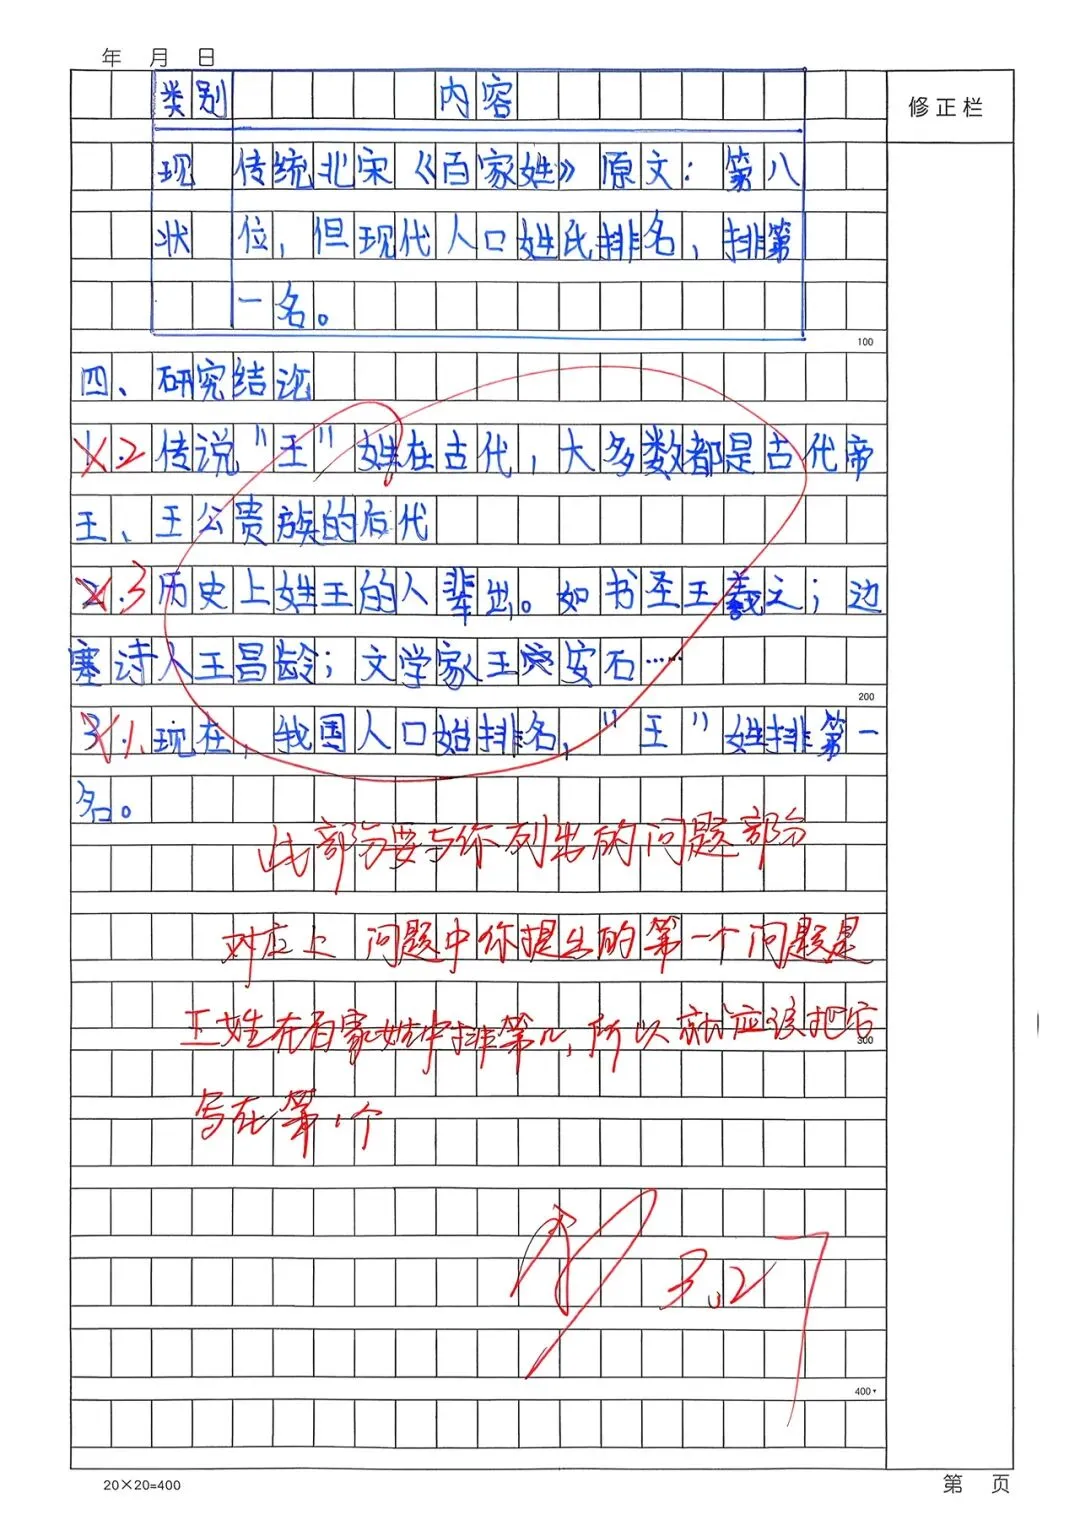 年 月 日
类别 内容
修正栏
现状 传统北宋《百家姓》原文：第八
位，但现代人口姓氏排名，排第
一名。
100
四、研究结论
1.2 传说“王”姓在古代，大多数都是古代帝
王、王公贵族的后代
2.3 历史上姓王的人辈出。如书圣王羲之；边
塞诗人王昌龄；文学家王安石……
200
3.1. 现在，我国人口姓排名，“王”姓排第一
名。
此部分要与你列出的问题部分
对应上 问题中你提出的第一个问题是
王姓在百家姓中排第几，所以就应该把它
300
写在第1个
3.27
400
20×20=400
第 页